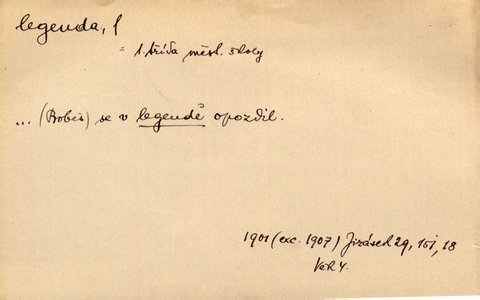 legenda, f
= 1. třída měst. školy
... (Bobeš) se v legendě opozdil.
1901 (exc. 1907) Jirásek 29, 151, 18
Věk 4.